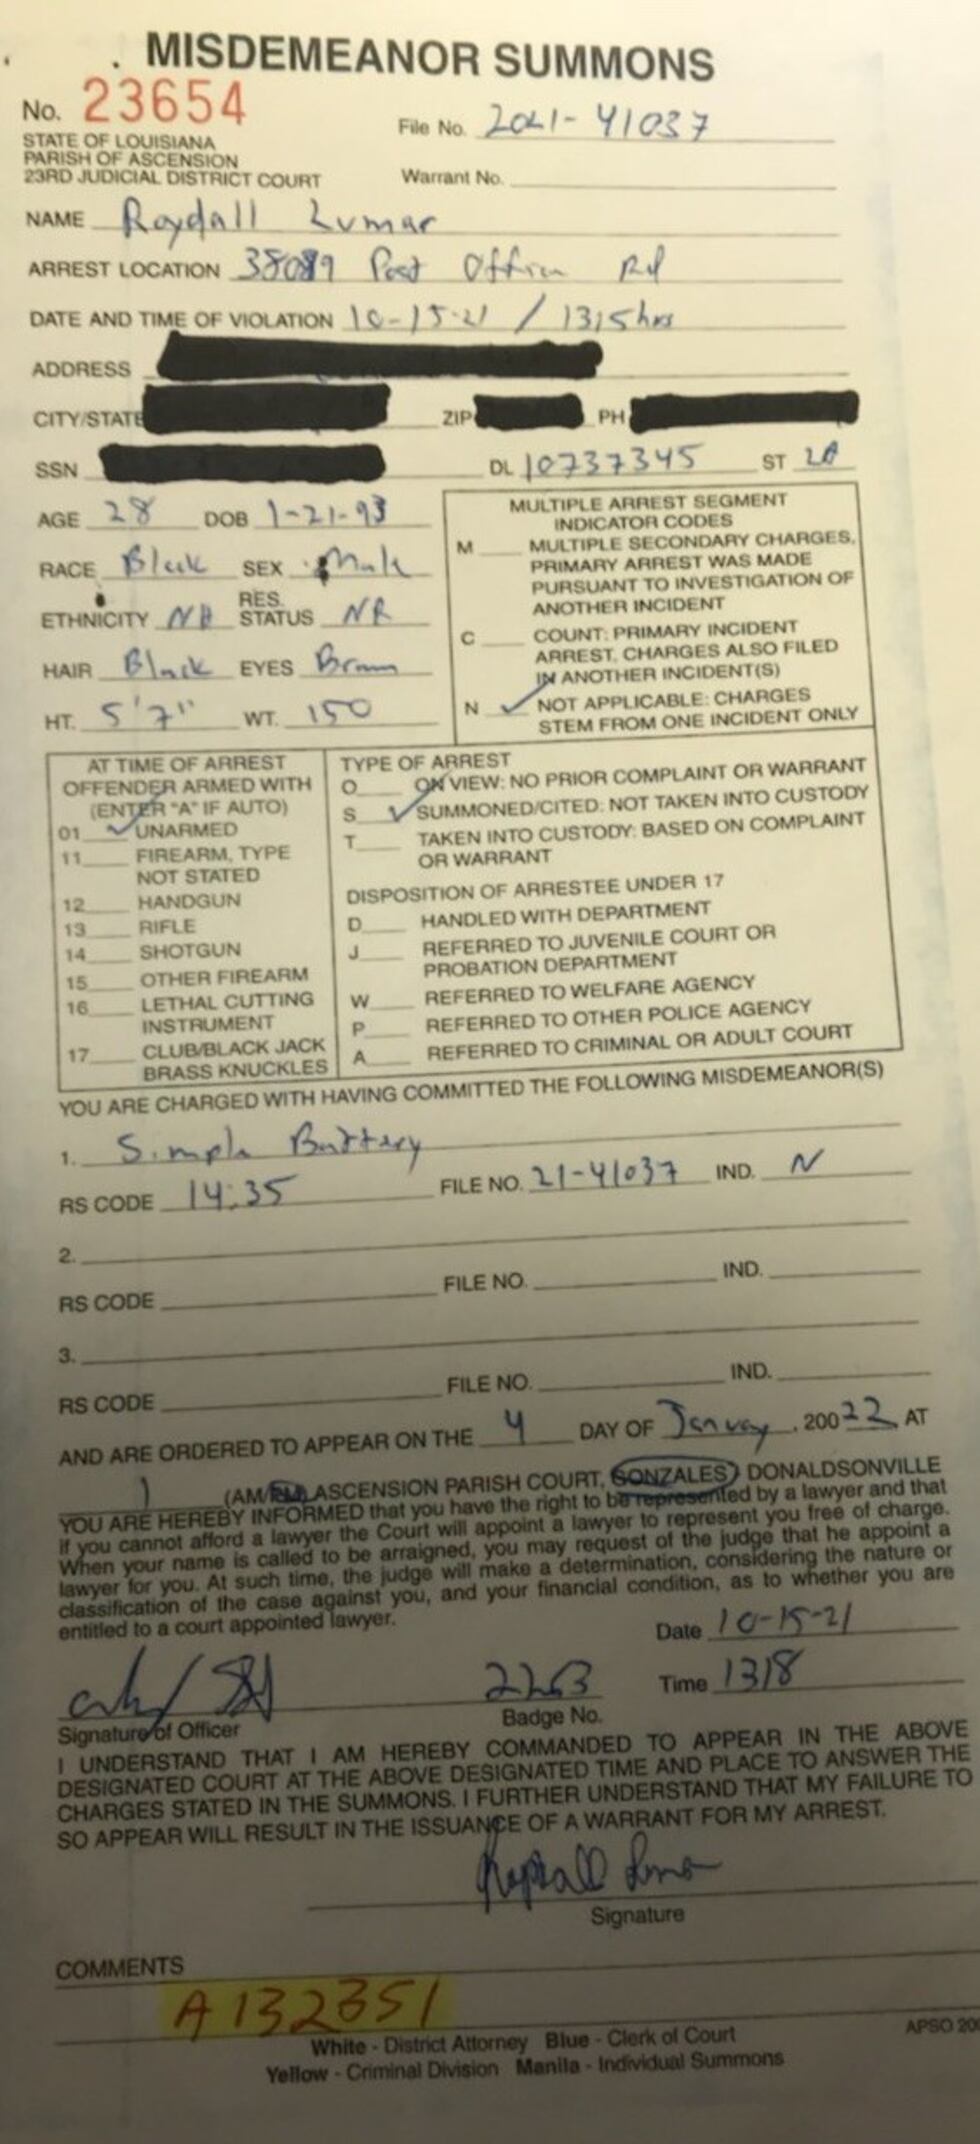 MISDEMEANOR SUMMONS
No. 23654
File No. 2021-41037
STATE OF LOUISIANA
PARISH OF ASCENSION
23RD JUDICIAL DISTRICT COURT
Warrant No.
NAME Roydall Lumar
ARREST LOCATION 38089 Post Office Rd
DATE AND TIME OF VIOLATION 10-15-21 / 1315hrs
ADDRESS
CITY/STATE ZIP PH
SSN DL 10737345 ST LA
AGE 28 DOB 1-21-93
RACE Black SEX Male
ETHNICITY NH RES. STATUS NR
HAIR Black EYES Brown
HT. 5'7" WT. 150
MULTIPLE ARREST SEGMENT
INDICATOR CODES
M MULTIPLE SECONDARY CHARGES,
PRIMARY ARREST WAS MADE
PURSUANT TO INVESTIGATION OF
ANOTHER INCIDENT
C COUNT: PRIMARY INCIDENT
ARREST, CHARGES ALSO FILED
IN ANOTHER INCIDENT(S)
N ✓ NOT APPLICABLE: CHARGES
STEM FROM ONE INCIDENT ONLY
AT TIME OF ARREST
OFFENDER ARMED WITH
(ENTER "A" IF AUTO)
01 ✓ UNARMED
11 FIREARM, TYPE
NOT STATED
12 HANDGUN
13 RIFLE
14 SHOTGUN
15 OTHER FIREARM
16 LETHAL CUTTING
INSTRUMENT
17 CLUB/BLACK JACK
BRASS KNUCKLES
TYPE OF ARREST
O ON VIEW: NO PRIOR COMPLAINT OR WARRANT
S ✓ SUMMONED/CITED: NOT TAKEN INTO CUSTODY
T TAKEN INTO CUSTODY: BASED ON COMPLAINT
OR WARRANT
DISPOSITION OF ARRESTEE UNDER 17
D HANDLED WITH DEPARTMENT
J REFERRED TO JUVENILE COURT OR
PROBATION DEPARTMENT
W REFERRED TO WELFARE AGENCY
P REFERRED TO OTHER POLICE AGENCY
A REFERRED TO CRIMINAL OR ADULT COURT
YOU ARE CHARGED WITH HAVING COMMITTED THE FOLLOWING MISDEMEANOR(S)
1. Simple Battery
RS CODE 14:35 FILE NO. 21-41037 IND. N
2.
RS CODE FILE NO. IND.
3.
RS CODE FILE NO. IND.
AND ARE ORDERED TO APPEAR ON THE 4 DAY OF January, 20022 AT
1 (AM/PM) ASCENSION PARISH COURT, GONZALES/ DONALDSONVILLE
YOU ARE HEREBY INFORMED that you have the right to be represented by a lawyer and that
if you cannot afford a lawyer the Court will appoint a lawyer to represent you free of charge.
When your name is called to be arraigned, you may request of the judge that he appoint a
lawyer for you. At such time, the judge will make a determination, considering the nature or
classification of the case against you, and your financial condition, as to whether you are
entitled to a court appointed lawyer.
Date 10-15-21
2263 Time 1318
Signature of Officer Badge No.
I UNDERSTAND THAT I AM HEREBY COMMANDED TO APPEAR IN THE ABOVE
DESIGNATED COURT AT THE ABOVE DESIGNATED TIME AND PLACE TO ANSWER THE
CHARGES STATED IN THE SUMMONS. I FURTHER UNDERSTAND THAT MY FAILURE TO
SO APPEAR WILL RESULT IN THE ISSUANCE OF A WARRANT FOR MY ARREST.
Signature
COMMENTS
A132351
White - District Attorney Blue - Clerk of Court
Yellow - Criminal Division Manila - Individual Summons
APSO 200